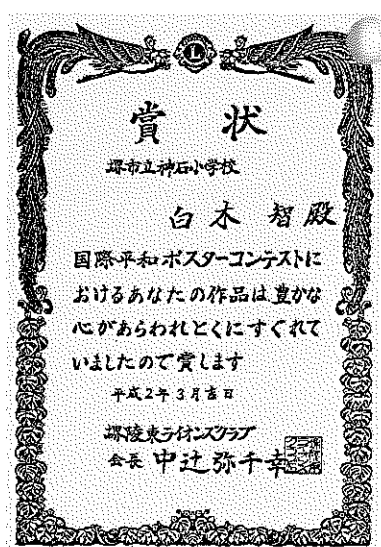 L
賞 状
堺市立神石小学校
白木 智殿
国際平和ポスターコンテストに
おけるあなたの作品は豊かな
心があらわれとくにすぐれて
いましたので賞します
平成2年3月吉日
堺陵東ライオンズクラブ
会長 中辻弥千幸